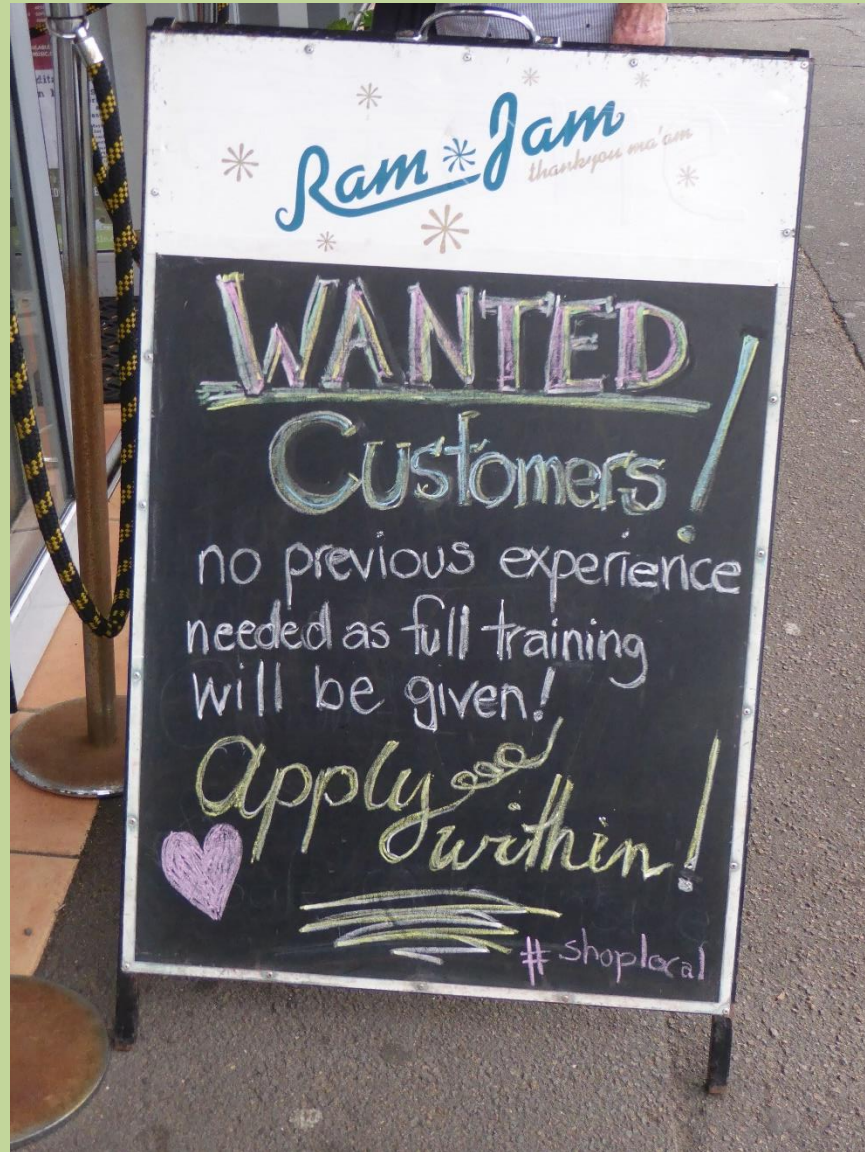 Ram Jam
thankyou ma'am
WANTED
Customers!
no previous experience
needed as full training
will be given!
apply
within!
# shoplocal